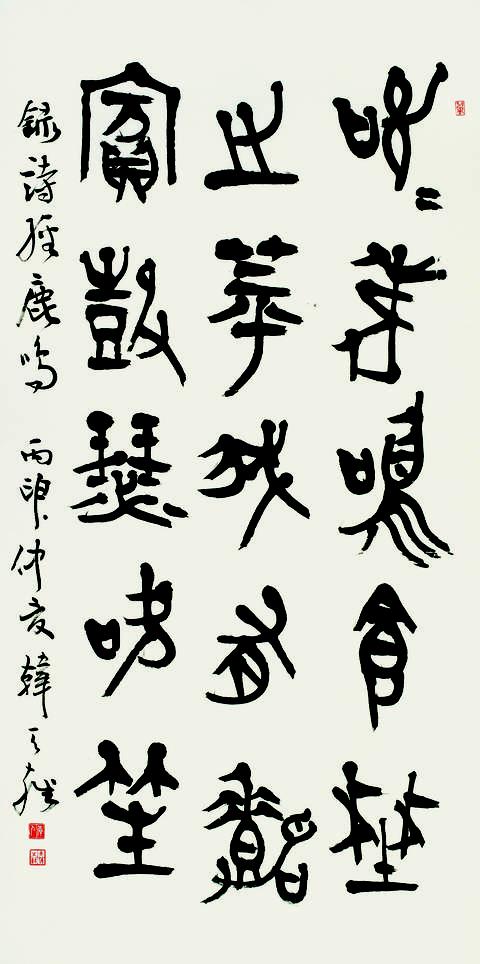 呦呦鹿鳴食埜
之苹我有嘉
賓鼓瑟吹笙
錄詩經鹿鳴 丙申仲夏 韓天衡